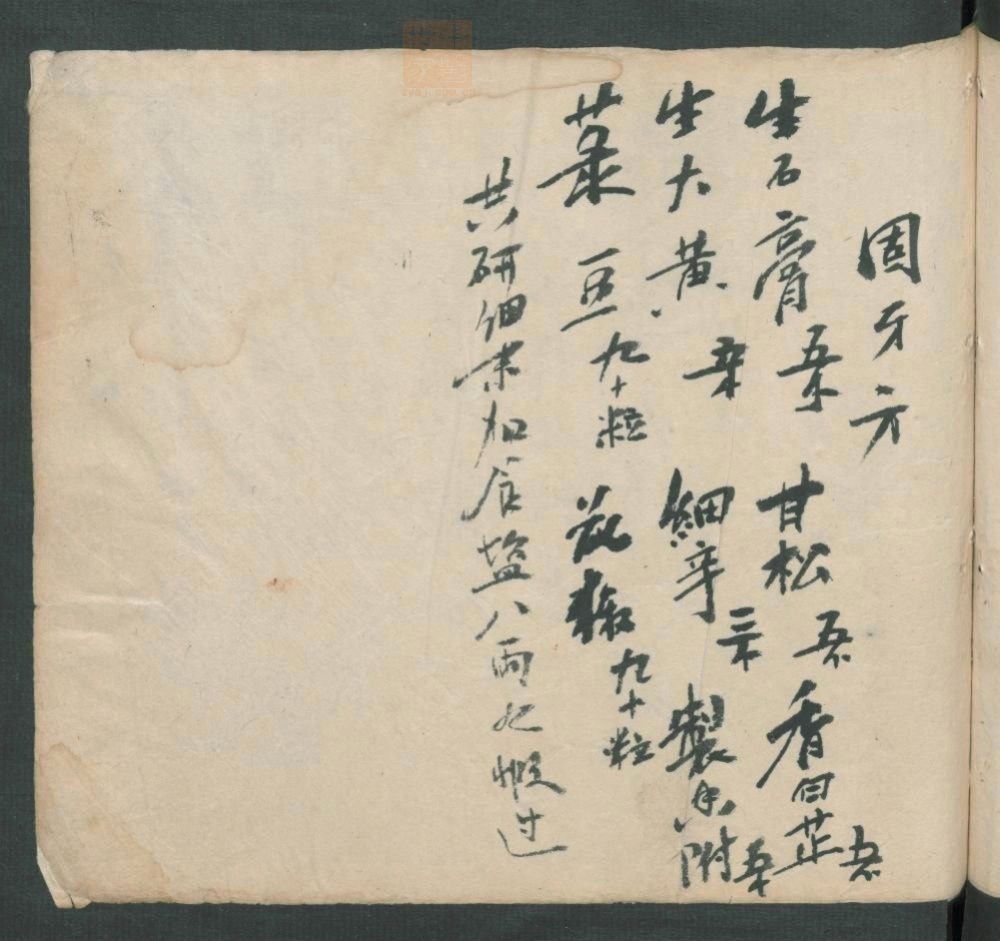 固牙方
生石膏 五钱 甘松 五钱 香白芷 五钱
生大黄 五钱 細辛 三钱 製香附 五钱
菉豆 九十粒 花椒 九十粒
共研细末加食盐八两 煅过